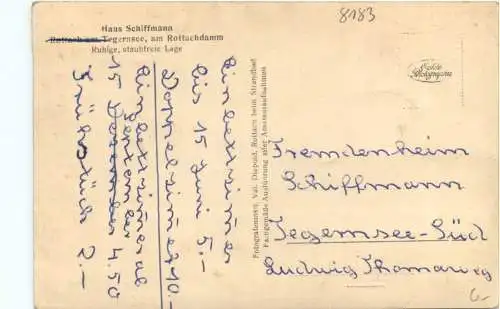 8183
Haus Schiffmann
Rottach am Tegernsee, am Rottachdamm
Ruhige, staubfreie Lage
Einbettzimmer
bis 15 Juni 5.-
Doppelzimmer 10.-
Einbettzimmer ab
September
15 Dezember 4.50
Frühstück 2.-
Fotografiemstr. Val. Diepold, Rottach beim Strandbad
Fachgemäße Ausführung aller Amateuraufnahmen
Echte
Photographie
Fremdenheim
Schiffmann
Tegernsee-Süd
Ludwig Thomaweg